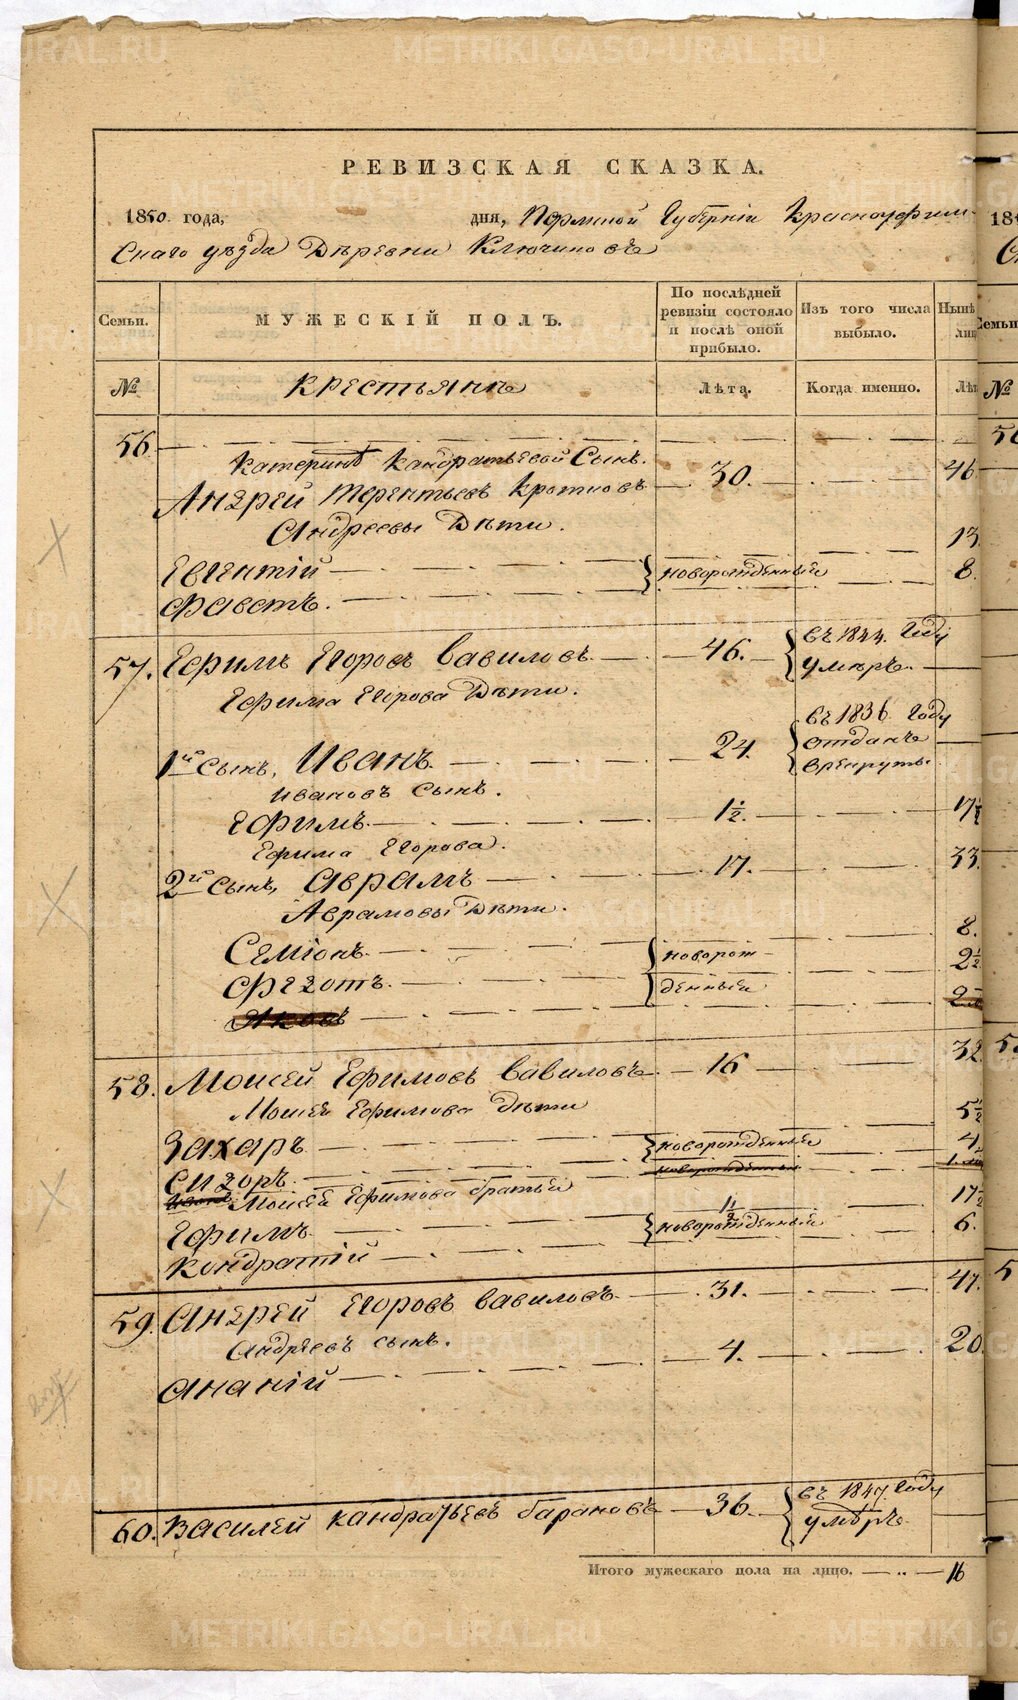 РЕВИЗСКАЯ СКАЗКА.
1850 года, дня, Пермской Губернии Красноуфим-
скаго уѣзда Дѣревни Ключиковъ
Семьи. МУЖЕСКІЙ ПОЛЪ. По послѣдней ревизіи состояло и послѣ оной прибыло. Изъ того числа выбыло. Нынѣ
№ крестьяне Лѣта. Когда именно. Лѣт
56
Катерины Кандратьевой Сынъ.
Андрей Терентьевъ Кротковъ 30. 46
Андреевы Дѣти. 13.
Евгентій новорожденныя 8.
Фавстъ.
57. Ефимъ Егоровъ Вавиловъ 46. въ 1844. Году умѣръ.
Ефима Егорова Дѣти.
1й Сынъ, Иванъ 24. въ 1836 Году отданъ врекруты
Ивановъ Сынъ.
Ефимъ 1½. 17½
Ефима Егорова.
2й Сынъ, Аврамъ 17. 33.
Аврамовы Дѣти.
Семіонъ новорож- 8.
Федотъ. денныя 2½
Яковъ
58. Моисей Ефимовъ Вавиловъ 16 32.
Моисея Ефимова дѣти 5½
Захаръ новорожденныя 4.
Сидоръ. новорожденныя
Моисея Ефимова братья
Ефимъ 1½ 17½
Кондратій новорожденный 6.
59. Андрей Егоровъ Вавиловъ 31. 47.
Андреевъ сынъ.
Ананій 4. 20.
60. Василей Кандратьевъ Барановъ 36. въ 1847. Году умѣръ
Итого мужескаго пола на лицо. 16
METRIKI.GASO-URAL.RU